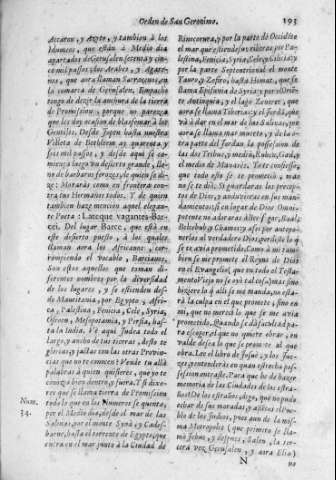 Orden de San Geronimo. 193
Accaron, y Azoto, y tambien à los
Idumeos, que están à Medio dia
apartados de Gerusalen setenta y cin-
co mil passos; los Arabes, y Agare-
nos, que aora llaman Sarracenos, en
la comarca de Gerusalen. Empacho
tengo de dezir la anchura de la tierra
de Promission; porque no parezca
que les doy ocasion de blasfemar à los
Gentiles. Desde Jopen hasta nuestra
Villeta de Bethleem ay quarenta y
seis mil passos, y desde aqui se co-
mienza luego un desierto grande, lle-
no de barbaros feroces, de quien se di-
ze: Morarás como en frontera con-
tra tus Hermanos todos. Y de quien
tambien haze mencion aquel elegan-
te Poeta: Lateque vagantes Bar-
cei. Del lugar Barce, que está en
este desierto puesto, à los quales
llaman aora los Africanos, cor-
rompiendo el vocablo, Barcianos,
Son estos aquellos que toman di-
ferentes nombres por la diversidad
de los lugares, y se estienden des-
de Mauritania, por Egypto, y Afri-
ca, Palestina, Fenicia, Cele, Syria,
Osroen, Mesopotamia, y Persia, has-
ta India. Ves aqui Judea todo el
largo, y ancho de tus tierras, desto te
glorias; jactas con las otras Provin-
cias que no te conocen: Vende tu allà
palabras à quien quisieres, que yo te
conozco bien dentro, y fuera. Y si dixe-
res que se llama tierra de Promission
todo lo que en los Numeros se quenta,
por el Medio dia, desde el mar de las
Salinas, por el monte Synà, à Cades-
barne, hasta el torrente de Egypto, que
entra en el mar junto à la Ciudad de
Num.
34.
Rinocorura, y por la parte de Occidente
el mar que estiende sus riberas por Pa-
lestina, Fenicia, Syria, Cele, y Cilicia; y
por la parte Septentrional el monte
Tauro, y Zefirio, hasta Emath, que se
llama Epifania de Syria; y por el Orie-
te Antioquia, y el lago Zeneret, que
aora se llama Tiberias, y el Jordan, que
và à dar en el mar de las Salinas, que
aora se llama mar muerto, y de la o-
tra parte del Jordan la possession de
las dos Tribus, y medio, Ruben, Gad, y
el medio de Manasses. Yo te confiesso,
que todo esto se te prometió, mas
no se te diò. Si guardaras los precep-
tos de Dios, y anduvieras en sus man-
damientos, si en lugar de Dios Omni-
potente no adoraras à Beelfegor, Baal,
Belzebub, y Chamos; y assi por antepo-
nerlos al verdadero Dios, perdiste lo q
se te avia prometido. Como à mi tam-
bien se me promete el Reyno de Dios
en el Evangelio, que en todo el Testa-
mento Viejo no se oyò tal; mas si no
hiziere lo q alli se me manda, no esta-
rà la culpa en el que promete, sino en
mi, que no mereci lo que se me avia
prometido. Quando se dà facultad pa-
ra escoger, el que no quiere obrar, en
valde desea lo que se promete al que
obra. Lee el libro de Josue, y los Jue-
zes, y entenderàs en quan estrecha pos-
session entraste. Para que he de hazer
memoria de las Ciudades de los estra-
ños? De los estraños, digo, que no pudo
echar de sus moradas, y assiento el Pue-
blo de los Judios, pues aun de la mis-
ma Metropolis (que primero se lla-
mò Jebus, y despues, Salen, la ter-
cera vez Gerusalen, y aora Elia)
N
no